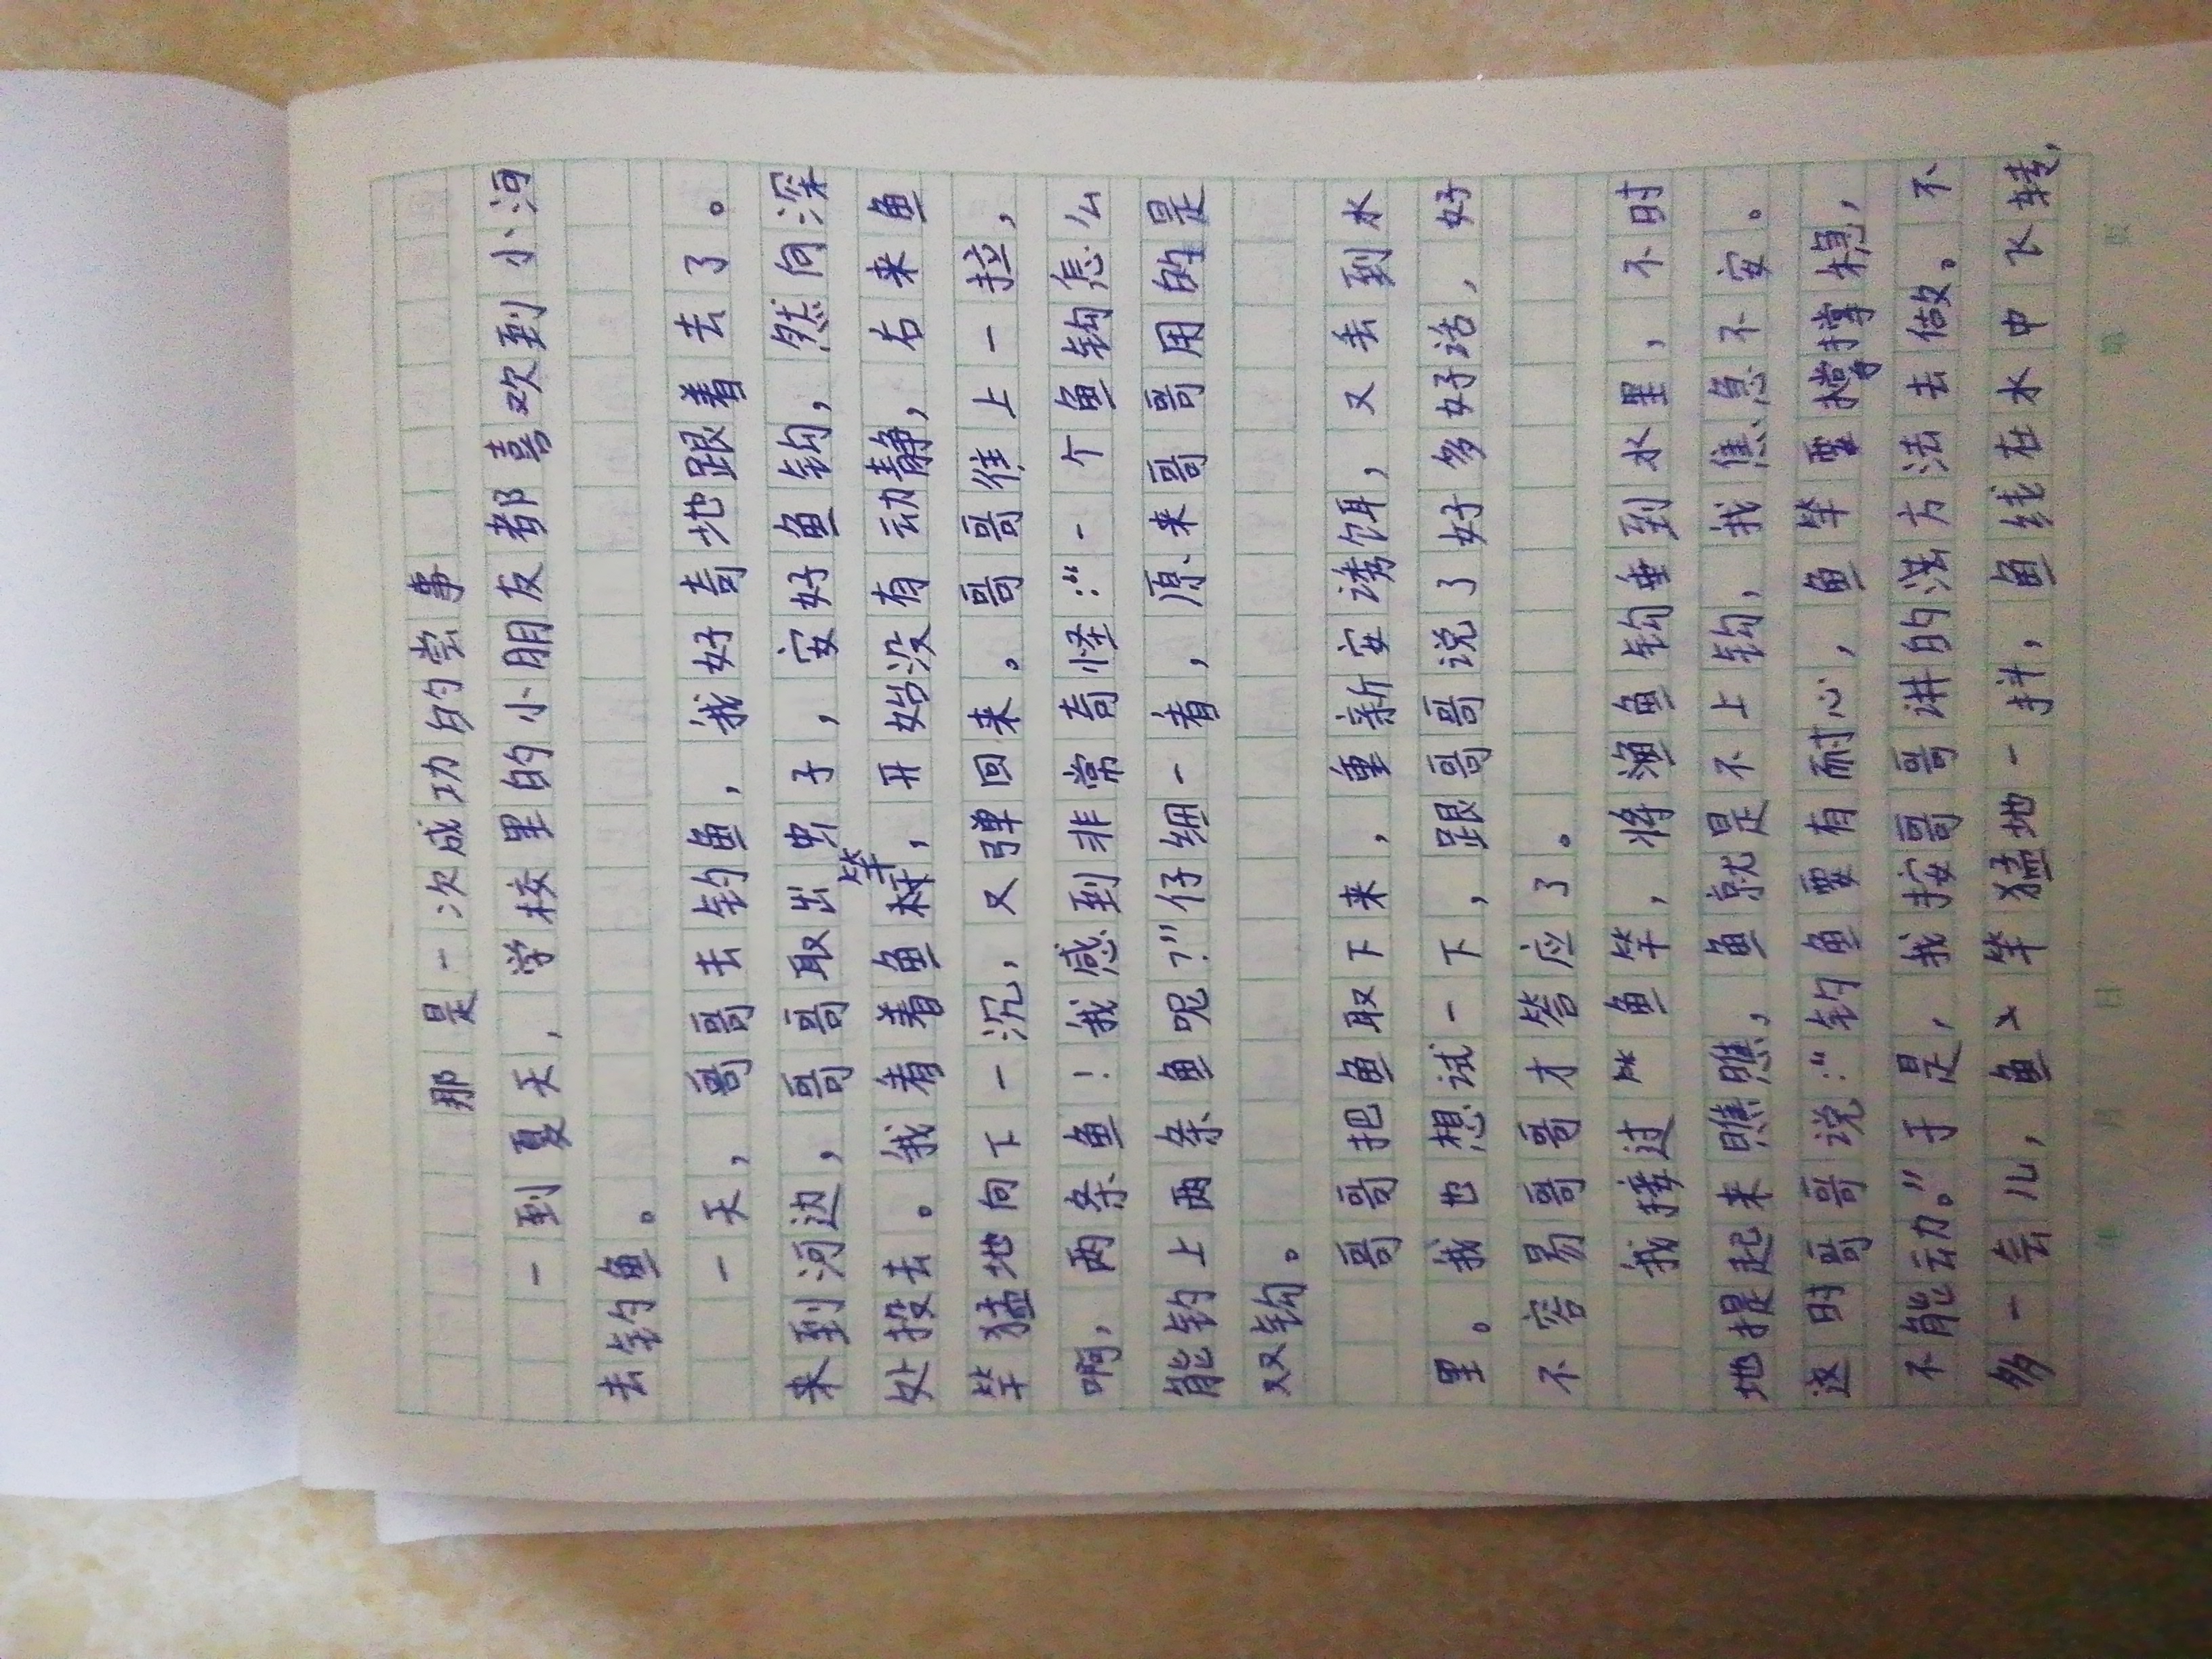 那是一次成功的尝事
一到夏天，学校里的小朋友都喜欢到小河
去钓鱼。
一天，哥哥去钓鱼，我好奇地跟着去了。
来到河边，哥哥取出虫子，安好鱼钩，然向深
处投去。我看着鱼竿，开始没有动静，右来鱼
竿猛地向下一沉，又弹回来。哥哥往上一拉，
啊，两条鱼！我感到非常奇怪：“一个鱼钩怎么
能钓上两条鱼呢？”仔细一看，原来哥哥用的是
双钩。
哥哥把鱼取下来，重新安诱饵，又丢到水
里。我也想试一下，跟哥哥说了好多好话，好
不容易哥哥才答应了。
我接过鱼竿，将渔鱼钩垂到水里，不时
地提起来瞧瞧，鱼就是不上钩，我焦急不安。
这时哥哥说：“钓鱼要有耐心，鱼竿要撑掌稳，
不能动。”于是，我按哥哥讲的法方法去做。不
多一会儿，鱼竿猛地一抖，鱼线在水中飞转，
年 月 日 第 页